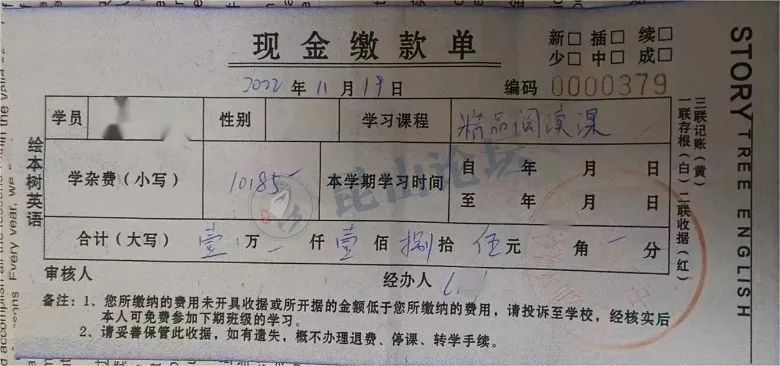 现金缴款单
新□ 插□ 续□
少□ 中□ 成□
2022 年 11 月 19 日
编码 0000379
学员 性别 学习课程 精品阅读课
学杂费（小写） 10185- 本学期学习时间 自 年 月 日
至 年 月 日
合计（大写） 壹 万 - 仟 壹 佰 捌 拾 伍 元 角 - 分
审核人 经办人
备注：1、您所缴纳的费用未开具收据或所开据的金额低于您所缴纳的费用，请投诉至学校，经核实后
本人可免费参加下期班级的学习。
2、请妥善保管此收据，如有遗失，概不办理退费、停课、转学手续。
绘本树英语
三联记账（黄）
一联存根（白）二联收据（红）
STORY TREE ENGLISH
昆山论坛
Every year, we